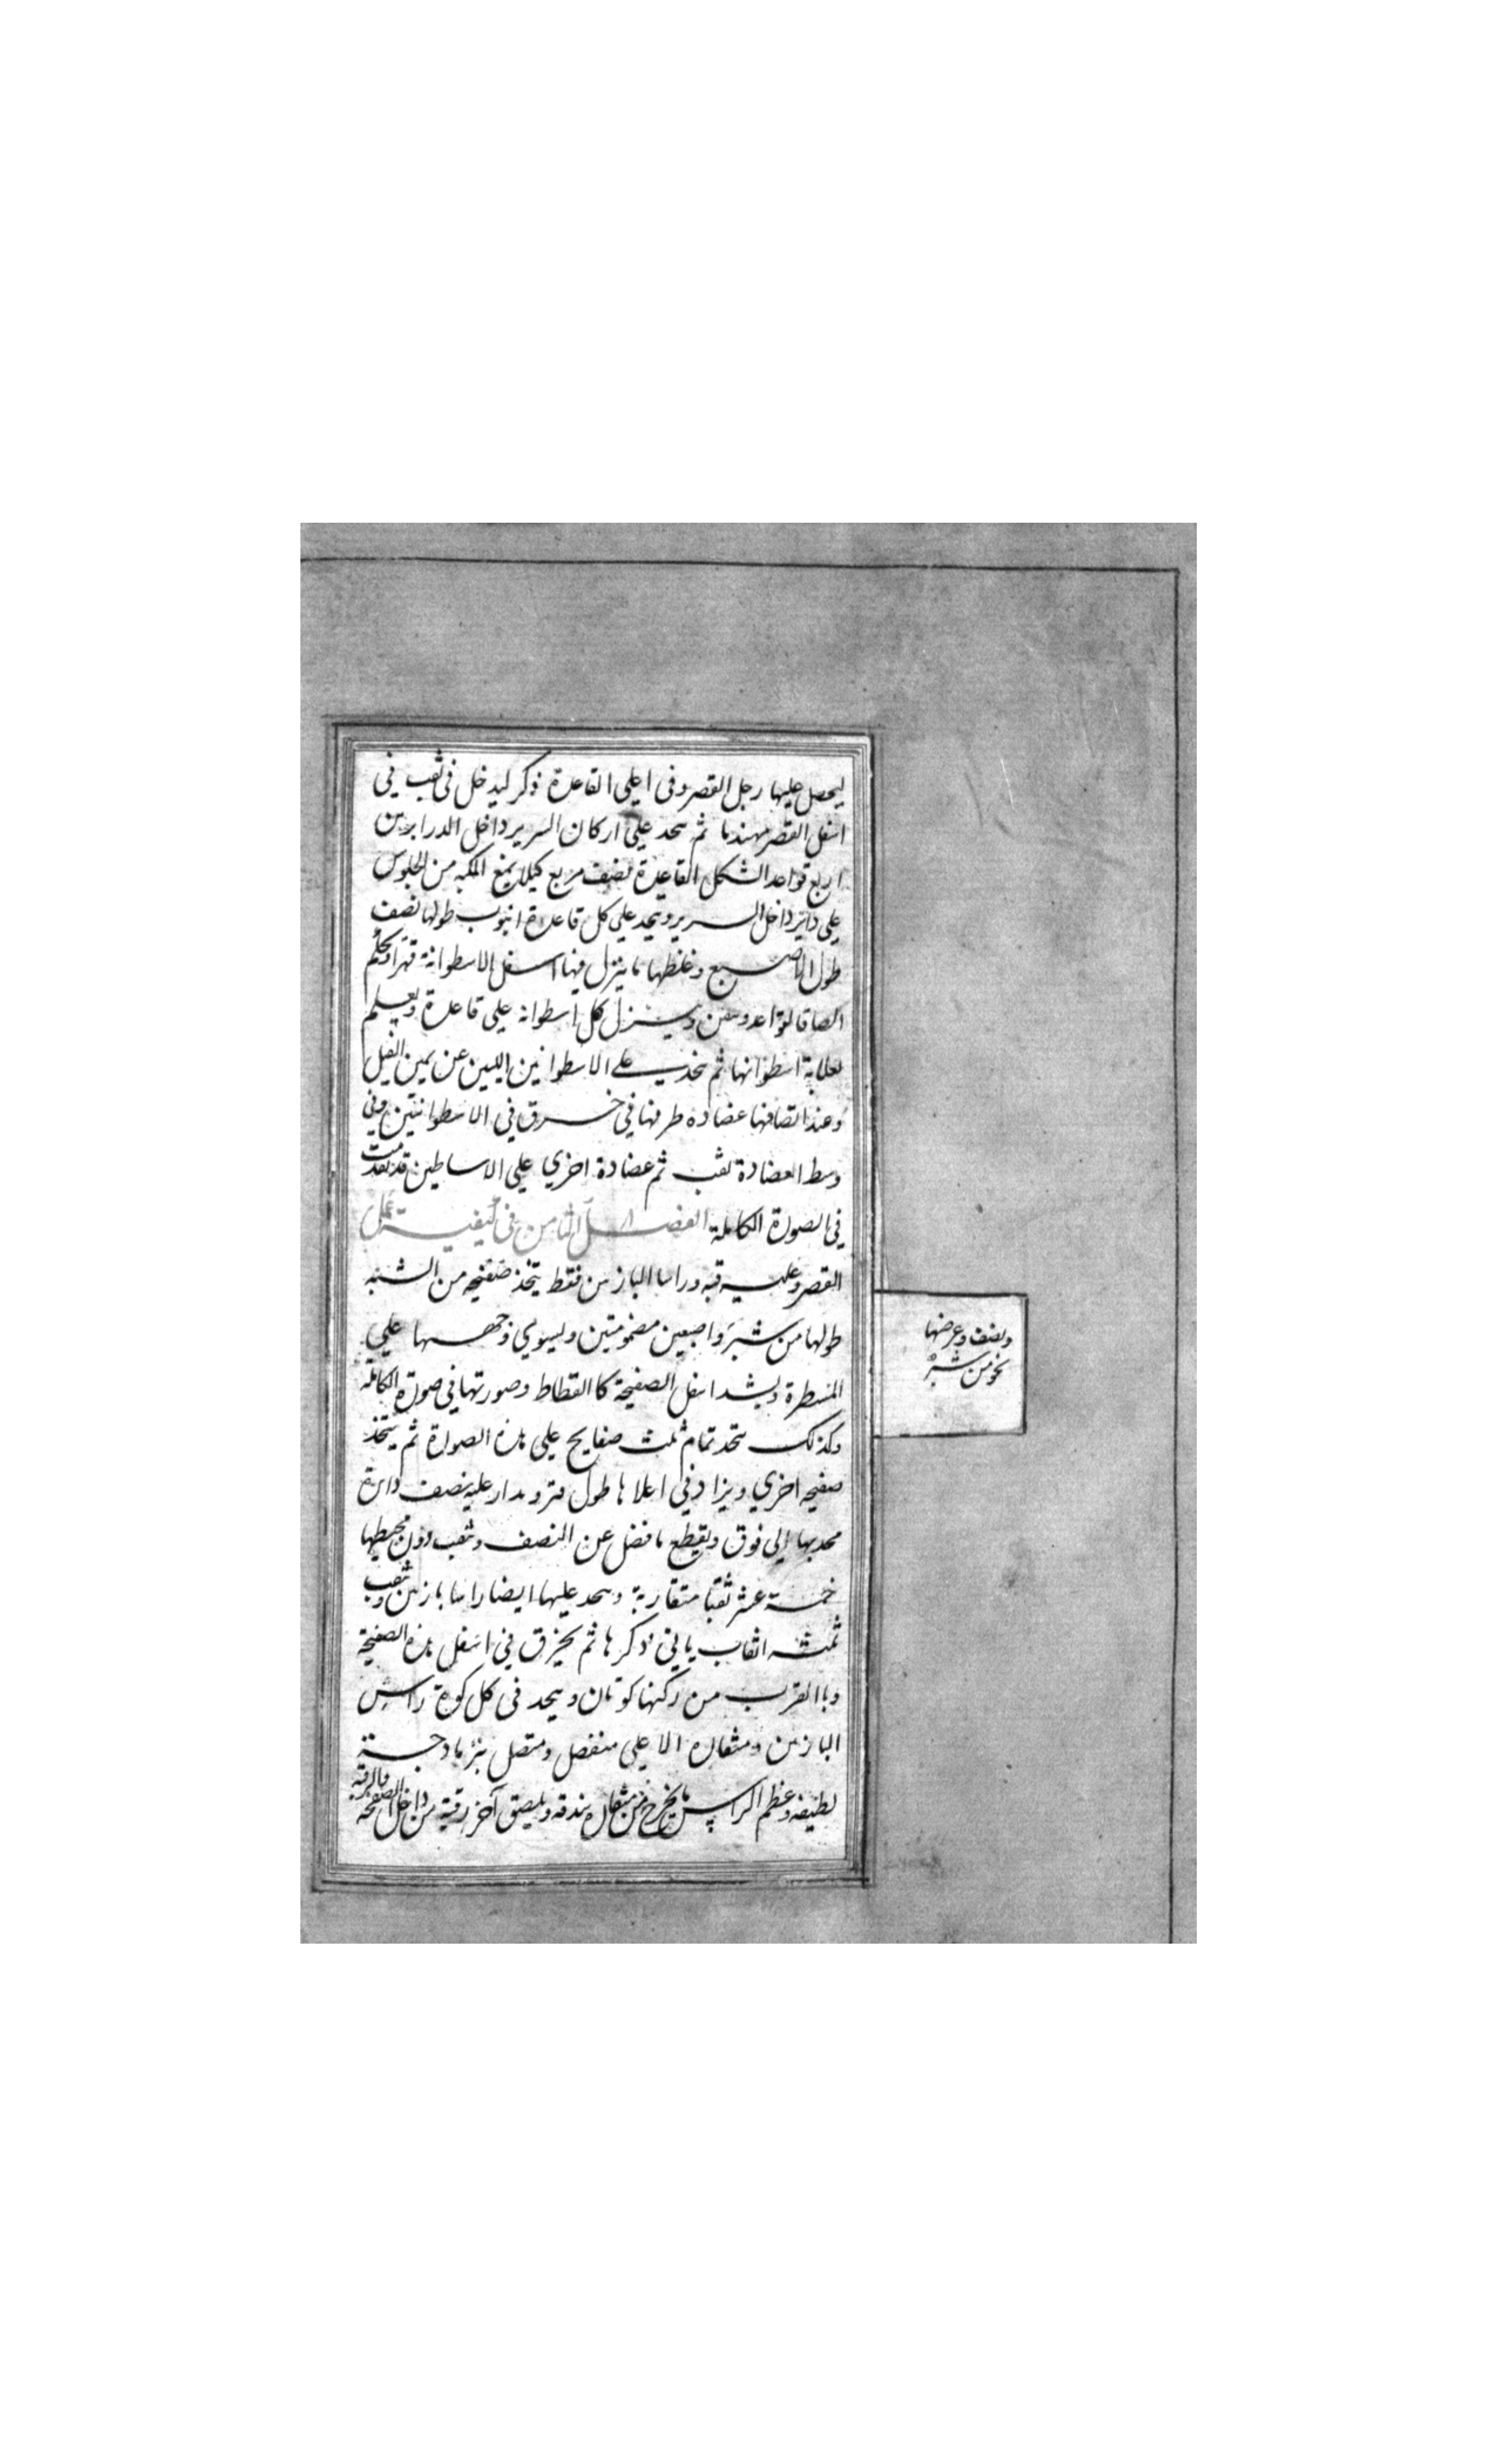 ليحصل عليها رجل القصر وفى اعلى القاعدة ذكر ليدخل فى ثقب في
اسفل القصر مهندما ثم يتحد على اركان السرير داخل الدرابزين
اربع قواعد الشكل القاعدة نصف مربع كيلا يمنع المكبه من الجلوس
علي داير داخل السرير ويتحد علي كل قاعدة انبوب طولها نصف
طول الاصبع وغلظها ما ينزل فيها اسفل الاسطوانة قهرا ويحكم
الصاق القواعد وينزل كل اسطوانة علي قاعدة ويعلم
بعلامة اسطوانها ثم يتخذ علي الاسطوانتين اللتين عن يمين الفيل
وعند التصاقها عضادة طرفها في خرق في الاسطوانتين وفي
وسط العضادة ثقب ثم عضادة اخري علي الاساطين قد تقدمت
في الصورة الكاملة الفصل الثامن في كيفية عمل
القصر وعليه قبه وراسا البازين فقط يتخذ صفيحه من الشبه
طولها من شبر واصبعين مضمومتين ويسوي وجهها علي
المسطرة ويشد اسفل الصفيحة كا القطاط وصورتها في صورة الكاملة
وكذلك يتحد تمام ثلث صفايح علي هذه الصورة ثم يتخذ
صفيحه اخري ويزاد في اعلاها طول فتر ويدار عليه نصف دائرة
محدبها الي فوق ويقطع ما فضل عن النصف وثقب دون محيطها
خمسة عشر ثقبا متقاربة ويتحد عليها ايضا راسا بازين وثقب
ثلثه اثقاب ياتي ذكرها ثم يخرق في اسفل هذه الصفيحة
وبا القرب من ركنها كوتان ويتحد في كل كوة راس
البازين ومنقاره الاعلي منفصل ومتصل بنرمادجة
لطيفه وعظم الراس ما يخرج من منقاره بندقه ويلصق آخر رقبة من داخل الصفيحة
ونصف وعرضها
نحو من شبر